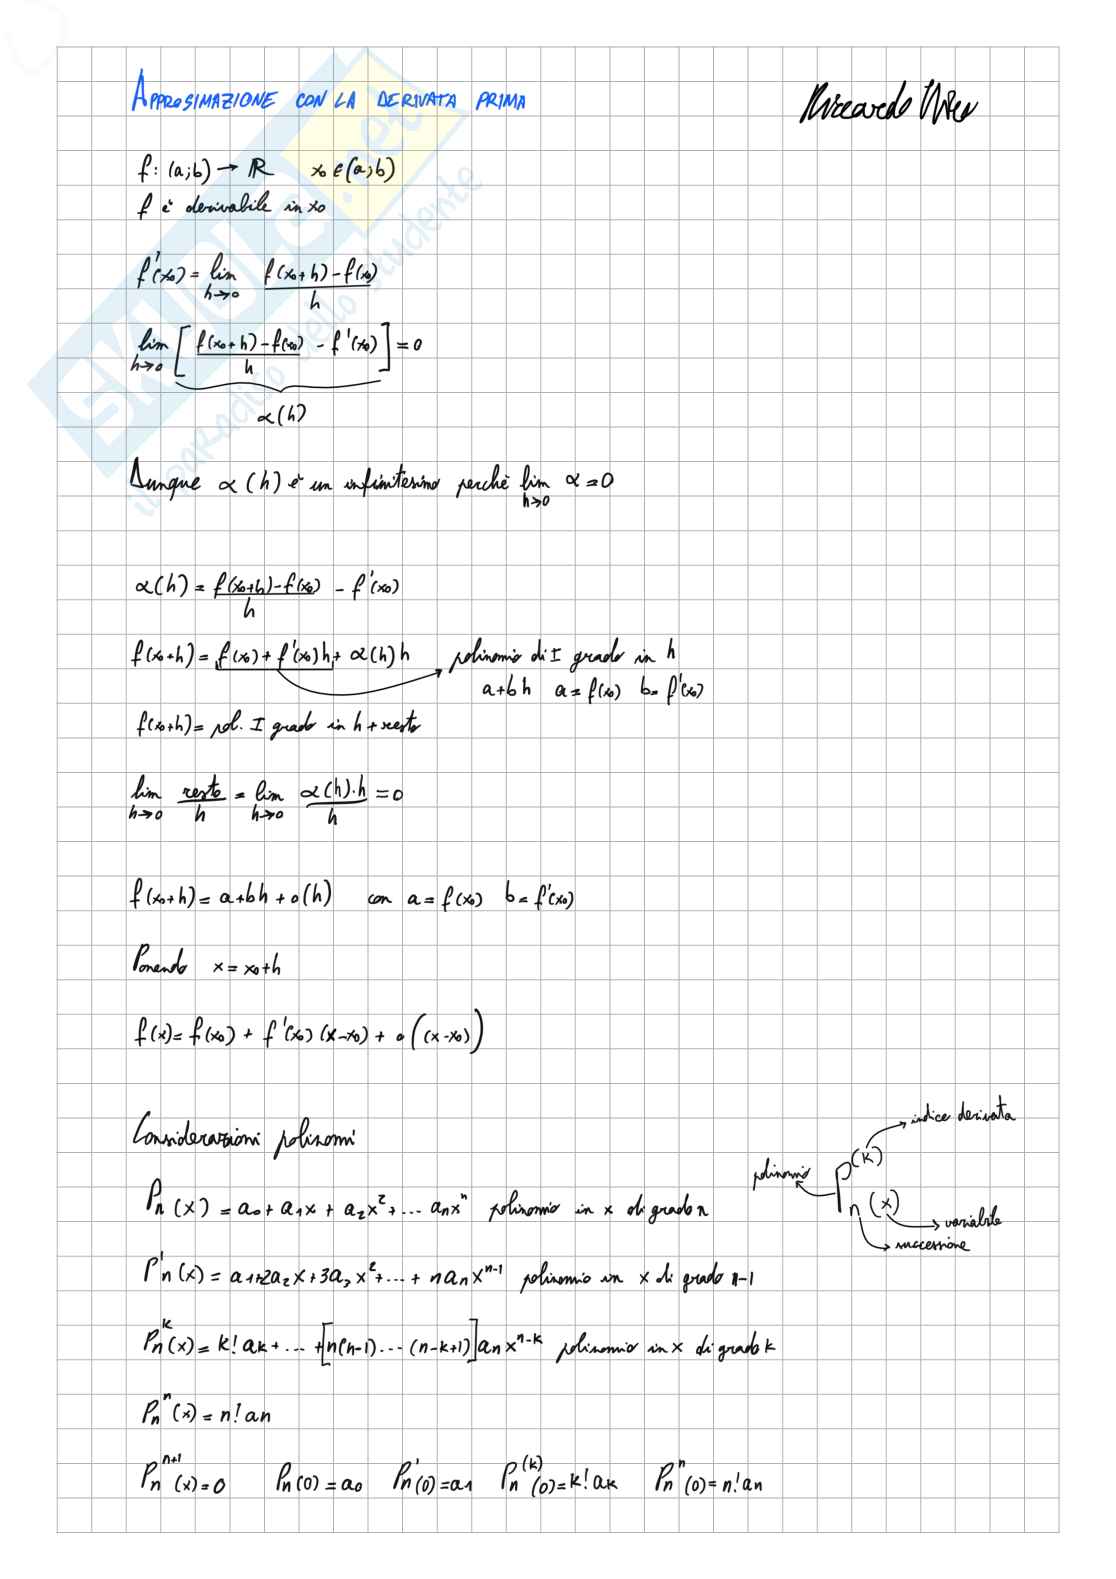 APPROSIMAZIONE CON LA DERIVATA PRIMA
Riccardo
f: (a;b) → ℝ x₀ ∈ (a;b)
f è derivabile in x₀
f'(x₀) = lim h→0 (f(x₀+h) - f(x₀))/h
lim h→0 [(f(x₀+h) - f(x₀))/h - f'(x₀)] = 0
α(h)
Dunque α(h) è un infinitesimo perchè lim h→0 α = 0
α(h) = (f(x₀+h) - f(x₀))/h - f'(x₀)
f(x₀+h) = f(x₀) + f'(x₀)h + α(h)h polinomio di I grado in h
a+bh a = f(x₀) b = f'(x₀)
f(x₀+h) = pol. I grado in h + resto
lim h→0 resto/h = lim h→0 (α(h)·h)/h = 0
f(x₀+h) = a+bh + o(h) con a = f(x₀) b = f'(x₀)
Ponendo x = x₀+h
f(x) = f(x₀) + f'(x₀)(x-x₀) + o((x-x₀))
Considerazioni polinomi
indice derivata
polinomio P⁽ᵏ⁾n(x)
variabile
successione
Pn(x) = a₀ + a₁x + a₂x² + ... anxⁿ polinomio in x di grado n
P'n(x) = a₁+2a₂x+3a₃x²+...+ nanxⁿ⁻¹ polinomio in x di grado n-1
Pnᵏ(x) = k! ak + ... + [n(n-1)...(n-k+1)]anxⁿ⁻ᵏ polinomio in x di grado k
Pnⁿ(x) = n! an
Pnⁿ⁺¹(x) = 0 Pn(0) = a₀ Pn'(0) = a₁ Pn⁽ᵏ⁾(0) = k! ak Pnⁿ(0) = n! an
SKUOLA.net
il paradiso dello studente